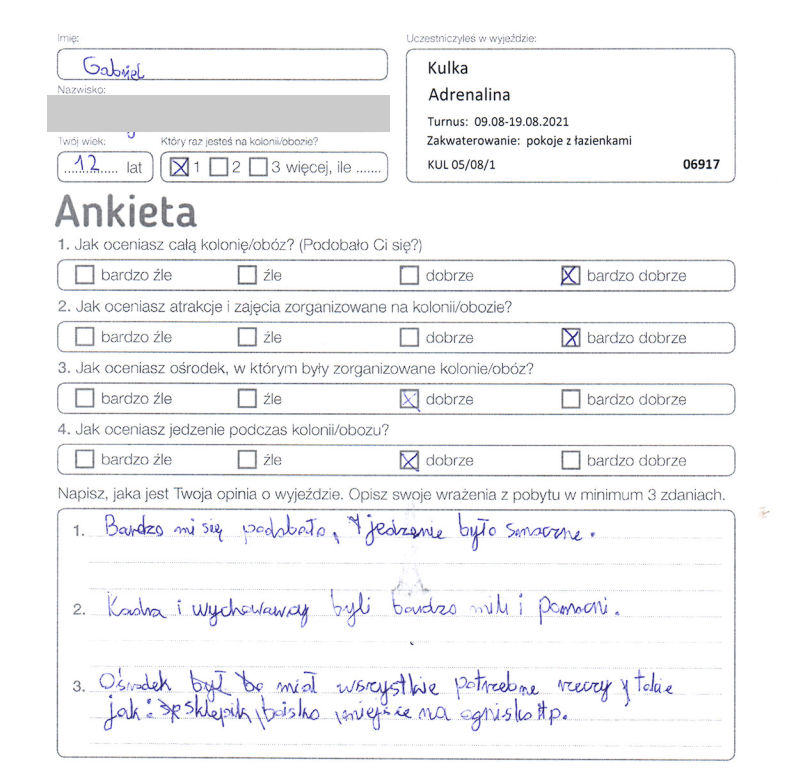 Imię:
Gabriel
Uczestniczyłeś w wyjeździe:
Kulka
Adrenalina
Turnus: 09.08-19.08.2021
Zakwaterowanie: pokoje z łazienkami
KUL 05/08/1 06917
Nazwisko:
Twój wiek:
12 lat
Który raz jesteś na kolonii/obozie?
1 2 3 więcej, ile .......
Ankieta
1. Jak oceniasz całą kolonię/obóz? (Podobało Ci się?)
bardzo źle źle dobrze bardzo dobrze
2. Jak oceniasz atrakcje i zajęcia zorganizowane na kolonii/obozie?
bardzo źle źle dobrze bardzo dobrze
3. Jak oceniasz ośrodek, w którym były zorganizowane kolonie/obóz?
bardzo źle źle dobrze bardzo dobrze
4. Jak oceniasz jedzenie podczas kolonii/obozu?
bardzo źle źle dobrze bardzo dobrze
Napisz, jaka jest Twoja opinia o wyjeździe. Opisz swoje wrażenia z pobytu w minimum 3 zdaniach.
1. Bardzo mi się podobało, jedzenie było smaczne.
2. Kadra i wychowawcy byli bardzo mili i pomocni.
3. Ośrodek miał wszystkie potrzebne rzeczy takie
jak: sklepik, boisko, miejsce na ognisko itp.